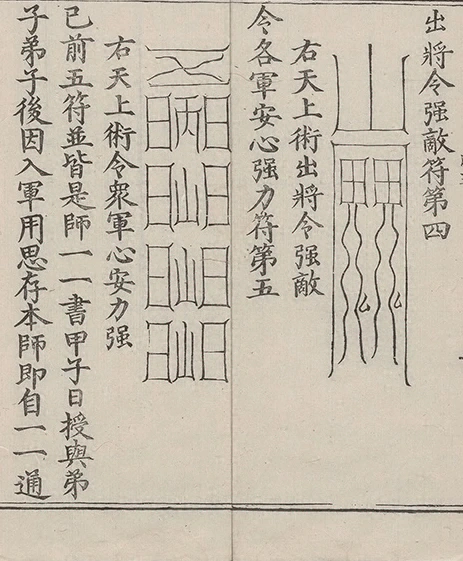 出將令强敵符第四
右天上術出將令强敵
令各軍安心强力符第五
右天上術令衆軍心安力强
已前五符並皆是師一一書甲子日授與弟
子弟子後因入軍用思存本師即自一一通